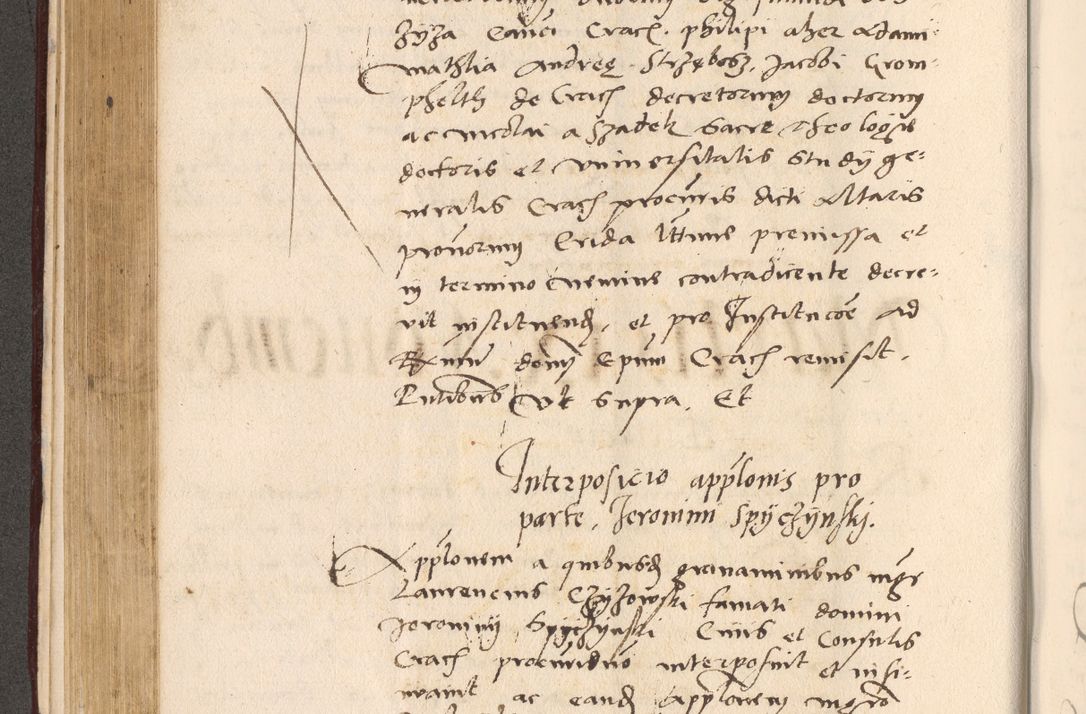 żyża Canci Crach. philipi alʒer Adami
mathia Andreę Strzębosz, Jacobi Grom-
phelth de Crach decretorum doctorum
ac nicolai a Szadek Sacre Theologie
doctoris et vniuersitatis Studij ge-
neralis Crach procuris dicti Altaris
pronorum Crida premissa et
in termino nemine contradicente decre-
vit instituend, et pro Institucoe Ad
Rxmum domi Epum Crach remisit.
Pntibus Vt Supra. Et
Interposicio applonis pro
parte Jeronimi Spyczynskj.
Applonem a quibusd grauaminibus mgr
Laurencius Czyżowski famati domini
Jeronimi Spyczynski Ciuis et Consulis
Crach procur interposuit et insi-
nuauit ac eand applonem